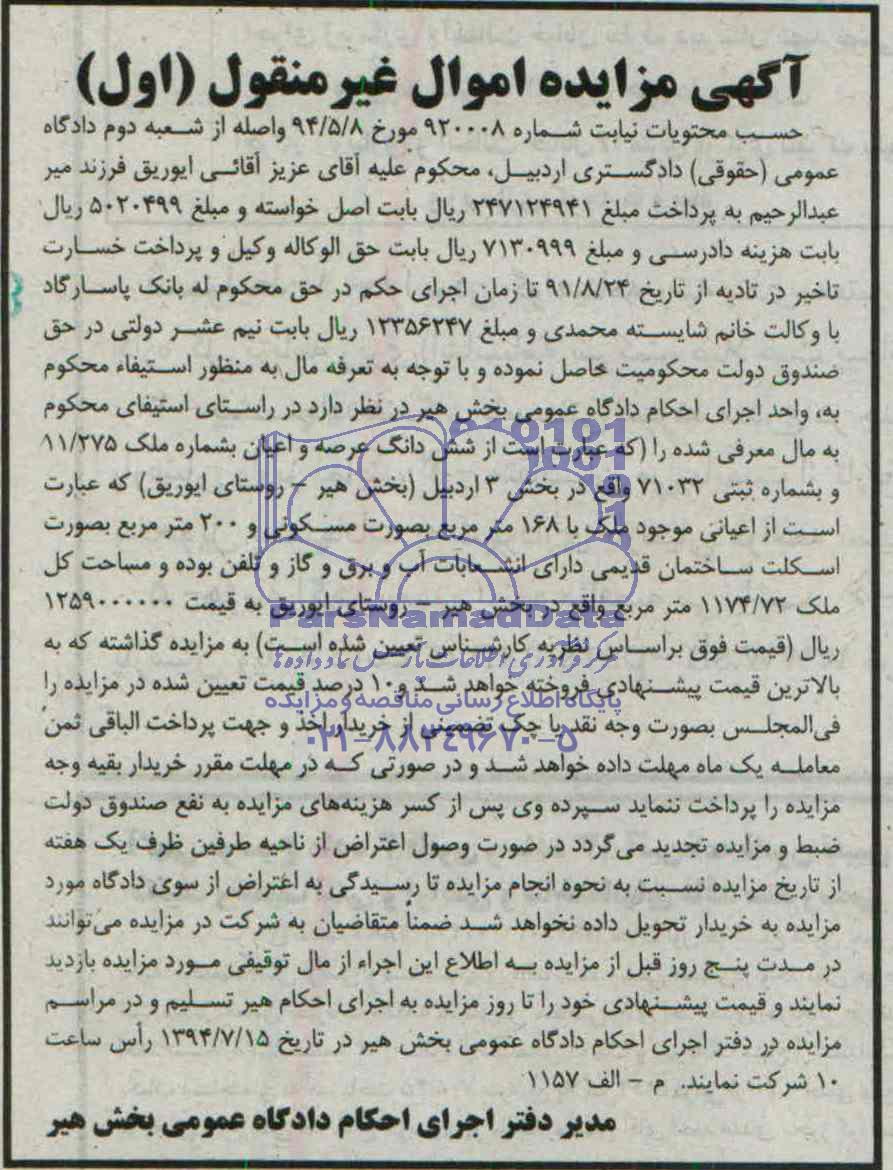 آگهی مزایده اموال غیرمنقول (اول)
حسب محتویات نیابت شماره ۹۲۰۰۰۸ مورخ ۹۴/۵/۸ واصله از شعبه دوم دادگاه
عمومی (حقوقی) دادگستری اردبیل، محکوم علیه آقای عزیز آقائی ایوریق فرزند میر
عبدالرحیم به پرداخت مبلغ ۲۴۷۱۲۴۹۴۱ ریال بابت اصل خواسته و مبلغ ۵۰۲۰۴۹۹ ریال
بابت هزینه دادرسی و مبلغ ۷۱۳۰۹۹۹ ریال بابت حق الوکاله وکیل و پرداخت خسارت
تاخیر در تادیه از تاریخ ۹۱/۸/۲۴ تا زمان اجرای حکم در حق محکوم له بانک پاسارگاد
با وکالت خانم شایسته محمدی و مبلغ ۱۲۳۵۶۲۴۷ ریال بابت نیم عشر دولتی در حق
صندوق دولت محکومیت حاصل نموده و با توجه به تعرفه مال به منظور استیفاء محکوم
به، واحد اجرای احکام دادگاه عمومی بخش هیر در نظر دارد در راستای استیفای محکوم
به مال معرفی شده را (که عبارت است از شش دانگ عرصه و اعیان بشماره ملک ۱۱/۲۷۵
و بشماره ثبتی ۷۱۰۳۲ واقع در بخش ۳ اردبیل (بخش هیر - روستای ایوریق) که عبارت
است از اعیانی موجود ملک با ۱۶۸ متر مربع بصورت مسکونی و ۲۰۰ متر مربع بصورت
اسکلت ساختمان قدیمی دارای انشعابات آب و برق و گاز و تلفن بوده و مساحت کل
ملک ۱۱۷۴/۷۲ متر مربع واقع در بخش هیر - روستای ایوریق به قیمت ۱۲۵۹۰۰۰۰۰۰
ParsNamadData
ریال (قیمت فوق براساس نظریه کارشناس تعیین شده است) به مزایده گذاشته که به
بالاترین قیمت پیشنهادی فروخته خواهد شد و ۱۰ درصد قیمت تعیین شده در مزایده را
پایگاه اطلاع رسانی مناقصه و مزایده
فی‌المجلس بصورت وجه نقد یا چک تضمینی از خریدار اخذ و جهت پرداخت الباقی ثمن
۰۲۱-۸۸۳۴۹۶۷۰-۵
معامله یک ماه مهلت داده خواهد شد و در صورتی که در مهلت مقرر خریدار بقیه وجه
مزایده را پرداخت ننماید سپرده وی پس از کسر هزینه‌های مزایده به نفع صندوق دولت
ضبط و مزایده تجدید می گردد در صورت وصول اعتراض از ناحیه طرفین ظرف یک هفته
از تاریخ مزایده نسبت به نحوه انجام مزایده تا رسیدگی به اعتراض از سوی دادگاه مورد
مزایده به خریدار تحویل داده نخواهد شد ضمناً متقاضیان به شرکت در مزایده می‌توانند
در مدت پنج روز قبل از مزایده به اطلاع این اجراء از مال توقیفی مورد مزایده بازدید
نمایند و قیمت پیشنهادی خود را تا روز مزایده به اجرای احکام هیر تسلیم و در مراسم
مزایده در دفتر اجرای احکام دادگاه عمومی بخش هیر در تاریخ ۱۳۹۴/۷/۱۵ رأس ساعت
۱۰ شرکت نمایند. م - الف ۱۱۵۷
مدیر دفتر اجرای احکام دادگاه عمومی بخش هیر